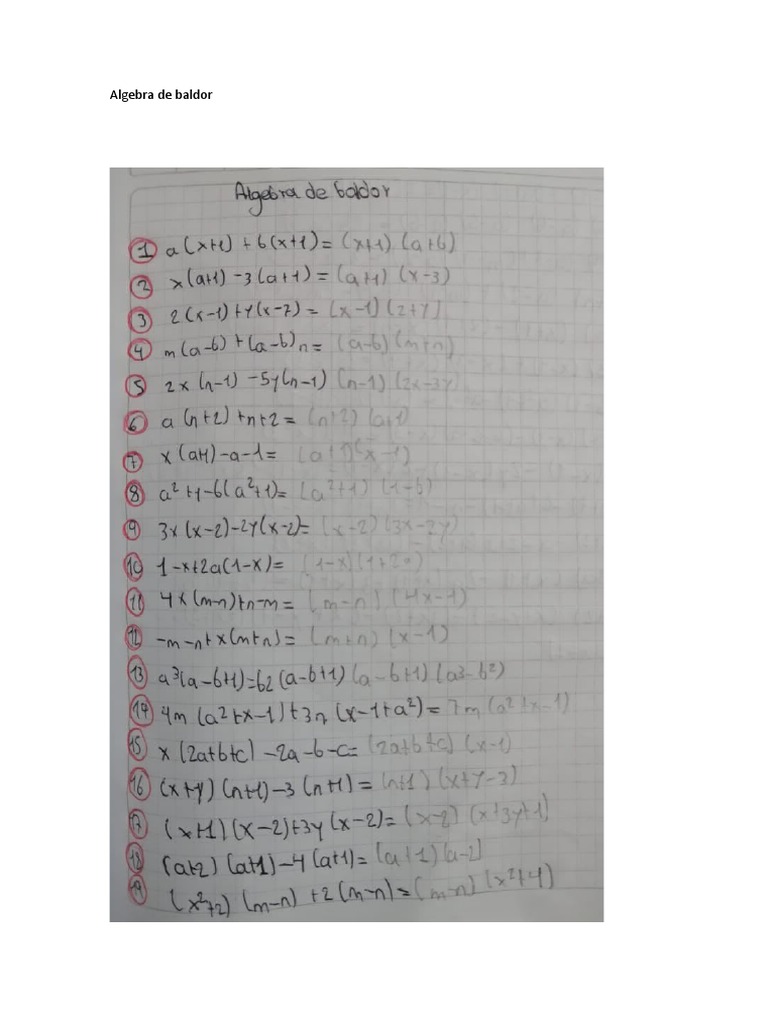 Algebra de baldor
Algebra de baldor
1 a(x+1) + b(x+1) = (x+1) (a+b)
2 x(a+1) -3(a+1) = (a+1) (x-3)
3 2(x-1)+y(x-7) = (x-1) (2+y)
4 m(a-b) +(a-b)n = (a-b) (m+n)
5 2x (n-1) -5y(n-1) (n-1) (2x-3y)
6 a (n+2) +n+2 = (n+2) (a+1)
7 x (a+1) -a-1 = (a+1)(x-1)
8 a² +1-b(a²+1)= (a²+1) (1-b)
9 3x (x-2)-2y(x-2)= (x-2) (3x-2y)
10 1-x+2a(1-x)= (1-x)(1+2a)
11 4x(m-n)+n-m = (m-n) (4x-1)
12 -m-n+x(m+n) = (m+n) (x-1)
13 a³(a-b+1)=b2(a-b+1) (a-b+1) (a3-b²)
14 4m (a²+x-1)+3n (x-1+a²) = 7m (a²+x-1)
15 x (2a+b+c) -2a-b-c= (2a+b+c) (x-1)
16 (x+y) (n+1)-3 (n+1) = (n+1) (x+y-3)
17 (x+1) (x-2)+3y (x-2)= (x-2) (x+3y+1)
18 (a+2) (a+1)-4 (a+1)= (a+1) (a-2)
19 (x²+2) (m-n) +2 (m-n)= (m-n) (x²+4)